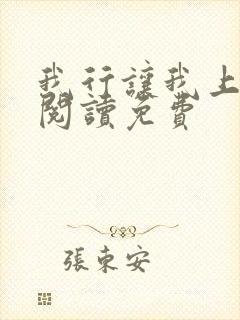 我行讓我上
閱讀免費
張東安